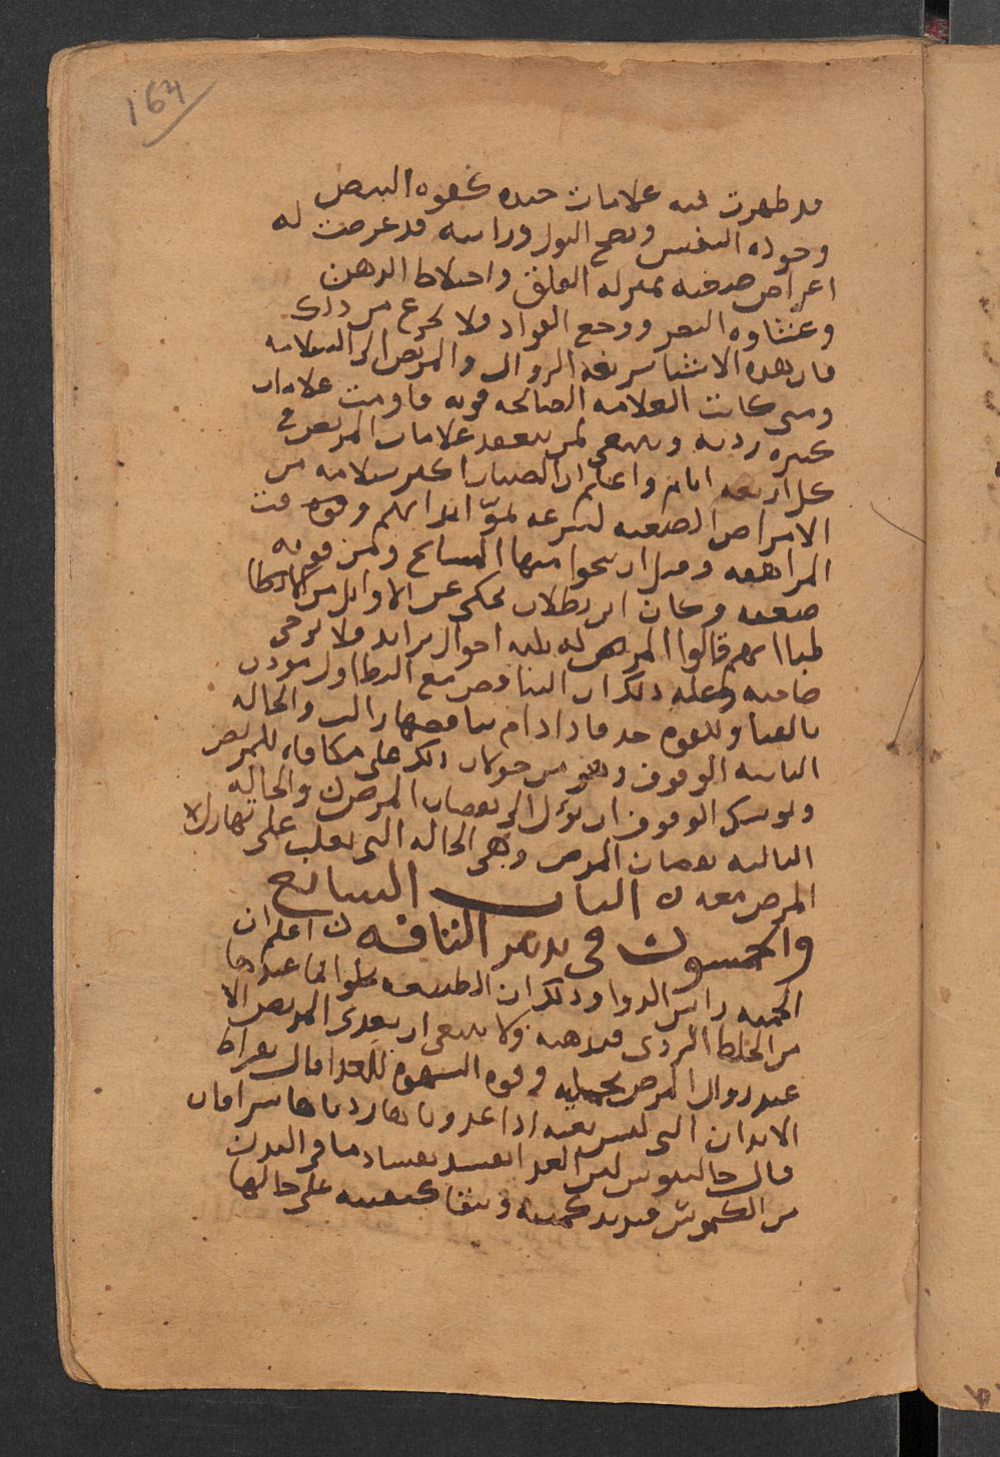 164
قد ظهرت فيه علامات جيده كقوه النبض
وجوده النفس ونضج البول ورايته قد عرضت له
اعراض صعبه بمنزله القلق واختلاط الذهن
وغشاوه البصر ووجع الفواد فلا تجزع من ذلك
فان هذه الاشيا سريعه الزوال والمريض الى السلامه
ومتى كانت العلامه الصالحه قويه قاومت علامات
كثيره رديه وينبغي لمن يتفقد علامات المريض في
كل اربعه ايام واعلم ان الصبيان اكثر سلامه من
الامراض الصعبه لسرعه نمو ابدانهم وقوه وقت
المراهقه وقبل ان ينجوا منها المشايخ ومن قوته
ضعيفه وكان ابن بطلان يحكي عن الاوايل من
اطبا انهم قالوا المريض له ثلثه احوال تزايد ولا يرجى
صاحبه وعله ذلك ان التناقص مع البطا اول موذن
بالفنا وللقوه حد فاذا دام تناقصها زالت والحاله
الثانيه الوقوف وهو من ذلك على مكافاه للمريض
ويوشك الوقوف ان يؤل الى نقصان المرض والحاله
الثالثه نقصان المرض وهي الحاله التي يغلب على
المرض معه ن الباب السابع
والخمسون في تدبير الناقه ن اعلم ان
الحميه راس الدوا وذلك ان الطبيعه تخلوا بما عندها
من الخلط الردي فتذهبه ولا ينبغي ان يغذى المريض الا
عند زوال المرض بحمليه وقوه الشهوه للغدا قال بقراط
الابدان التي ليس بنقيه اذا غدوتها زدتها شرا قال
قال جالينوس ليس الغدا يفسد بفساد ما في البدن
من الكيموس فيزيد كميته وتبقا كيفيته على حالها